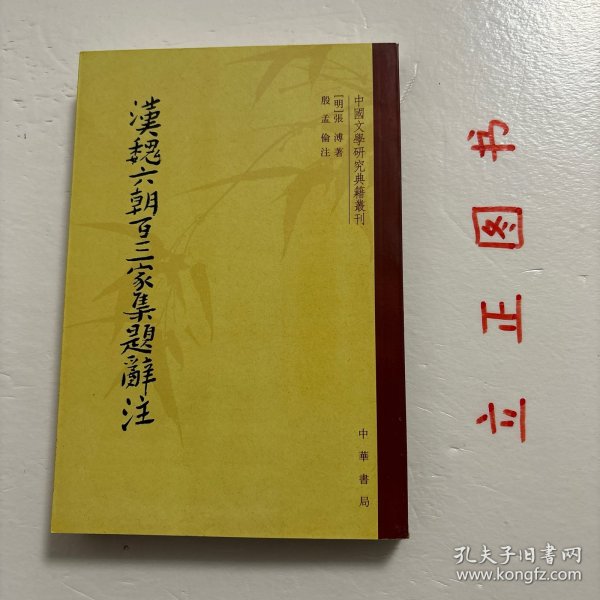 中國文學研究典籍叢刊
[明]張溥著
殷孟倫注
漢魏六朝百三家集題辭注
中華書局
立正图书
孔夫子旧书网
www.kongfz.com